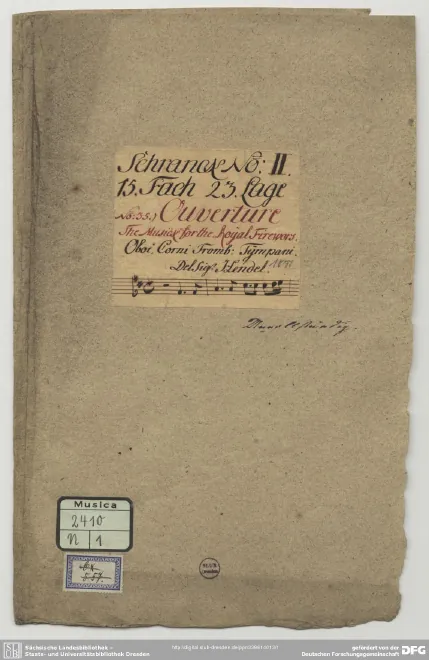 Schranck No: II.
15. Fach 23. Lage
No: 35.) Ouverture
The Musick for the Royal Firewors.
Oboi. Corni Tromb: Tÿmpani.
Del Sigr Hendel.
Musica
2410
N 1
Sächsische Landesbibliothek –
Staats- und Universitätsbibliothek Dresden
gefördert von der
Deutschen Forschungsgemeinschaft
DFG